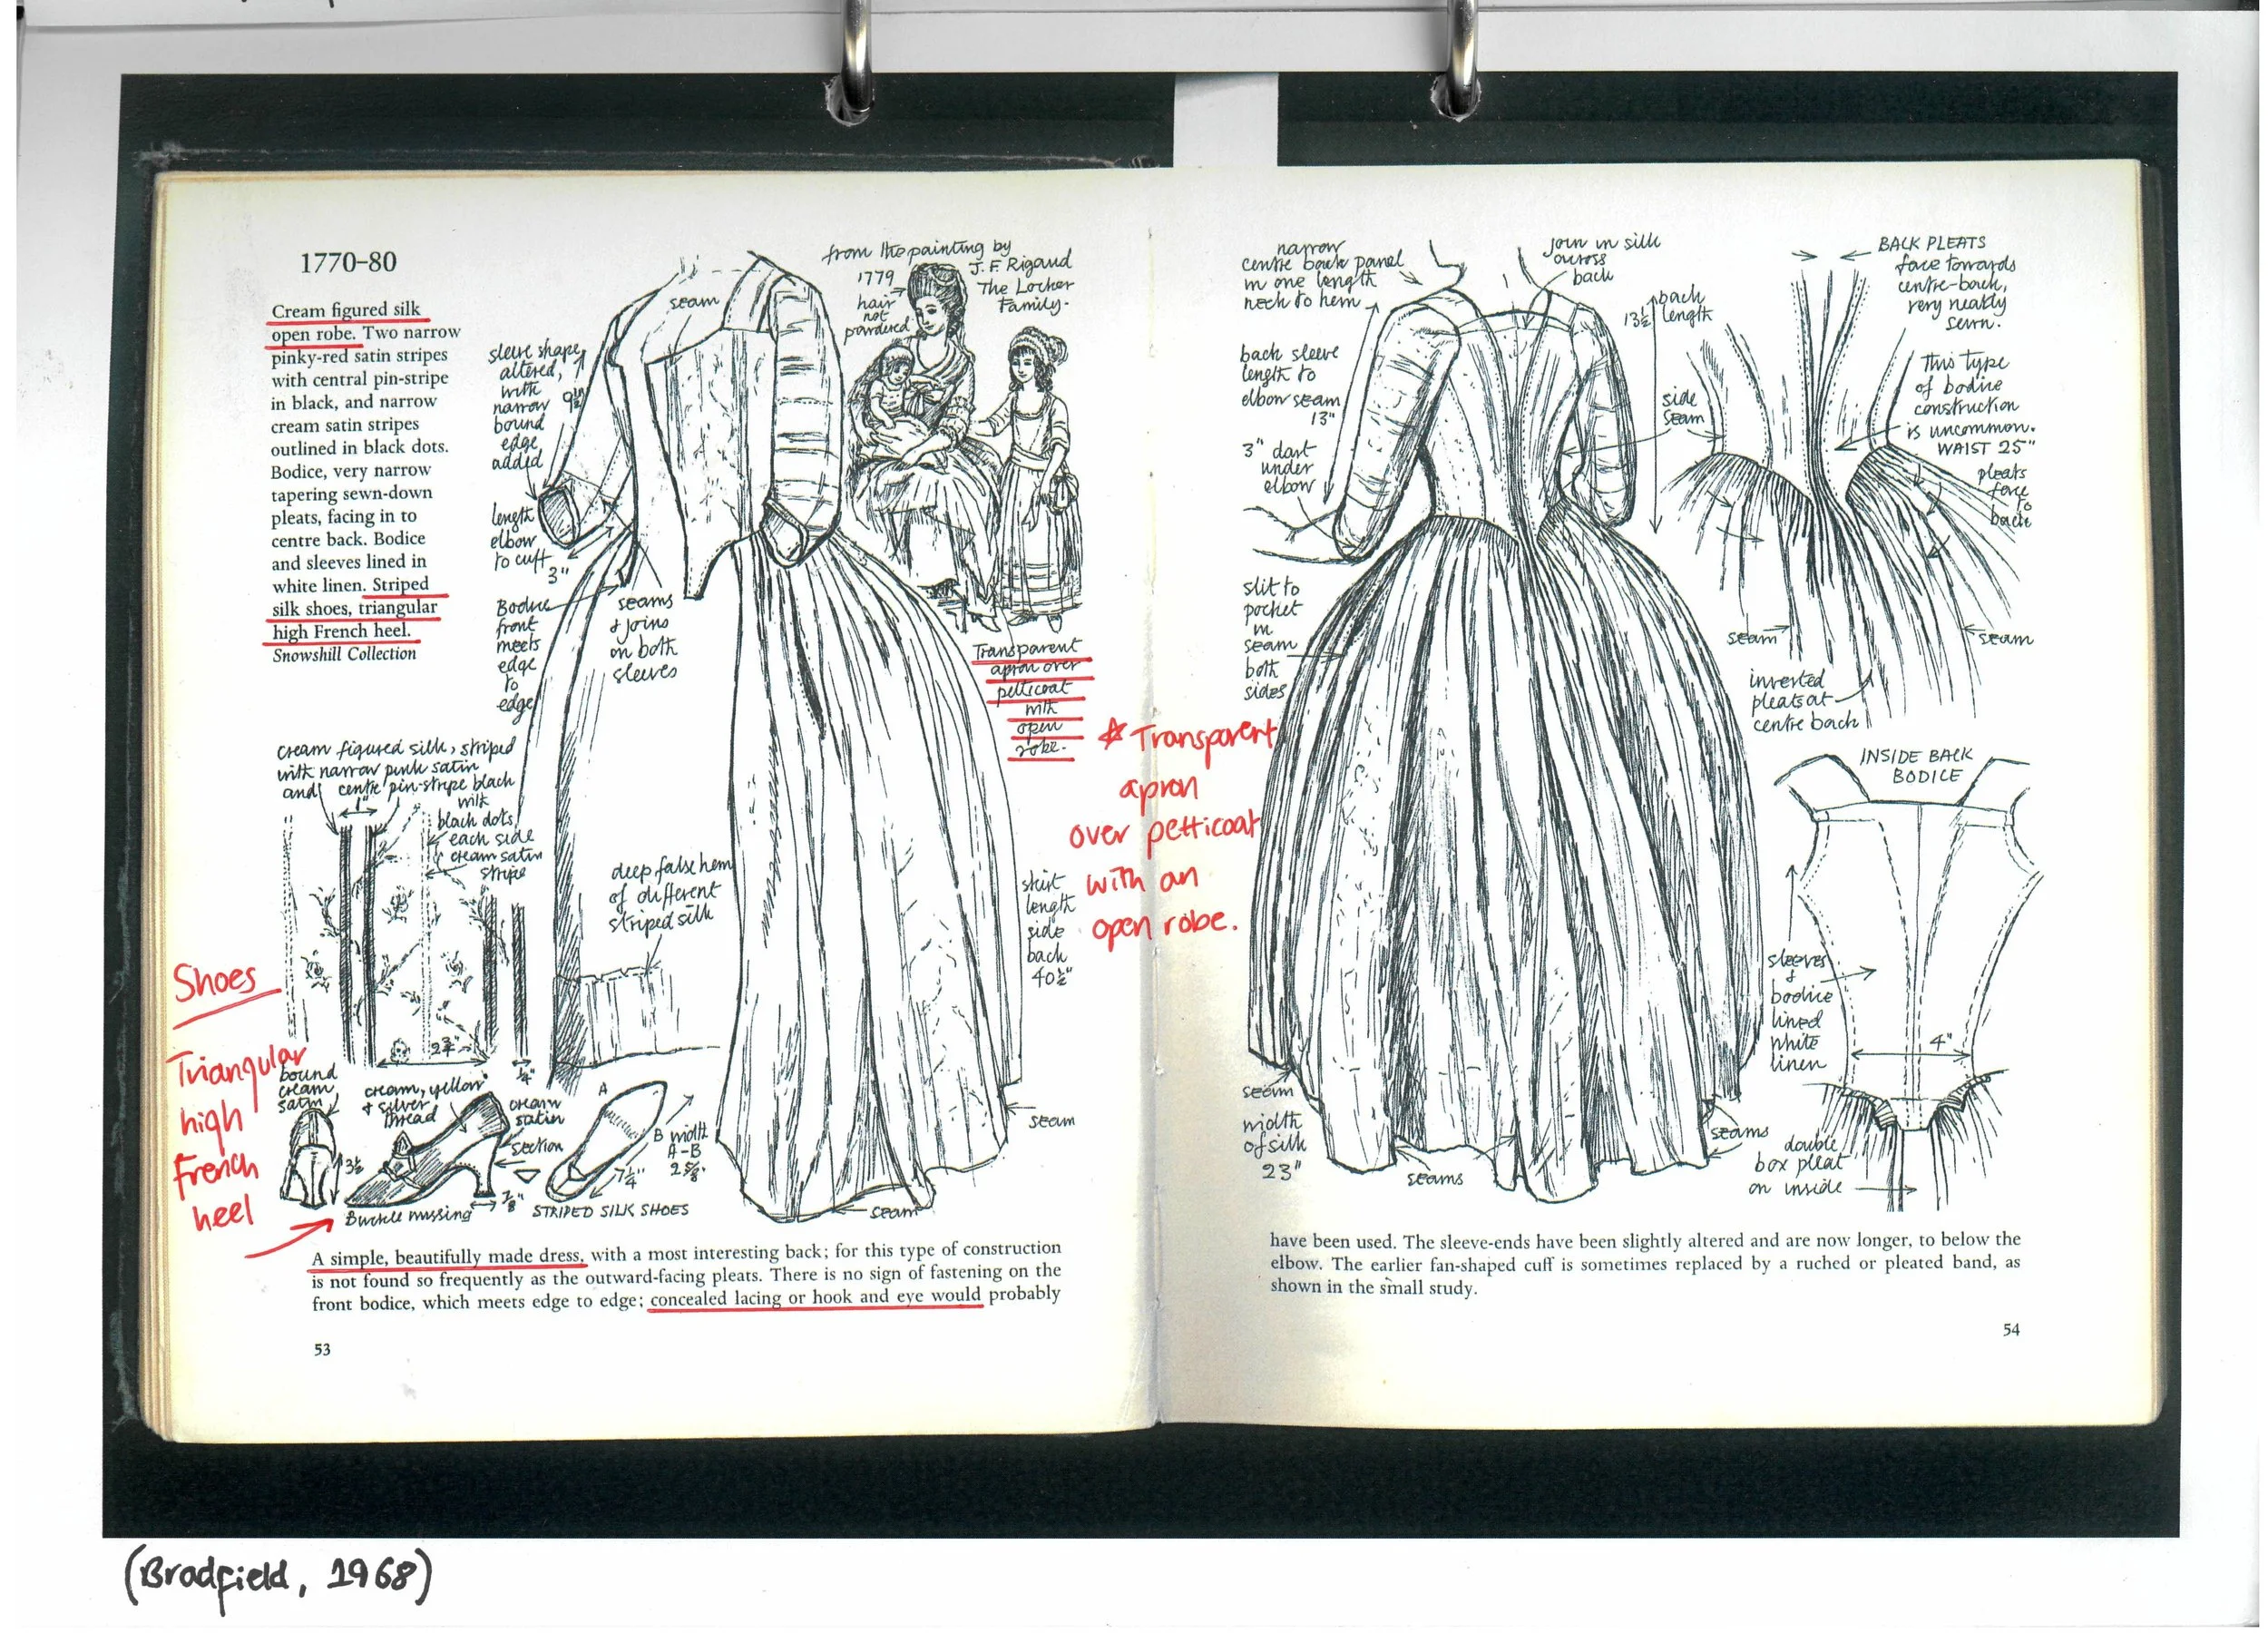 1770–80
Cream figured silk
open robe. Two narrow
pinky-red satin stripes
with central pin-stripe
in black, and narrow
cream satin stripes
outlined in black dots.
Bodice, very narrow
tapering sewn-down
pleats, facing in to
centre back. Bodice
and sleeves lined in
white linen. Striped
silk shoes, triangular
high French heel.
Snowshill Collection
sleeve shape
altered,
with
narrow
bound
edge
added
9½"
length
elbow
to cuff
3"
Bodice
front
meets
edge
to
edge
seam
seams
& joins
on both
sleeves
from the painting by
J. F. Rigaud
1779
The Locker
Family.
hair
not
powdered
Transparent
apron over
petticoat
with
open
robe.
cream figured silk, striped
with narrow pink satin
and centre pin-stripe black
1"
with
black dots
each side
cream satin
stripe
2¾"
¼"
deep false hem
of different
striped silk
skirt
length
side
back
40½"
seam
seam
bound
cream
satin
cream, yellow
& silver
thread
cream
satin
section
3½
⅞"
Buckle missing
A
B
width
A-B
2⅝"
7¼"
STRIPED SILK SHOES
Shoes
Triangular
high
French
heel
* Transparent
apron
over petticoat
with an
open robe.
A simple, beautifully made dress, with a most interesting back; for this type of construction
is not found so frequently as the outward-facing pleats. There is no sign of fastening on the
front bodice, which meets edge to edge; concealed lacing or hook and eye would probably
53
narrow
centre back panel
in one length
neck to hem
join in silk
across
back
back
length
13½
back sleeve
length to
elbow seam
13"
3" dart
under
elbow
side
seam
slit to
pocket
in
seam
both
sides
BACK PLEATS
face towards
centre-back,
very neatly
sewn.
This type
of bodice
construction
is uncommon.
WAIST 25"
pleats
face
to
back
seam
seam
inverted
pleats at
centre back
INSIDE BACK
BODICE
sleeves
&
bodice
lined
white
linen
4"
double
box pleat
on inside
seam
width
of silk
23"
seams
seams
have been used. The sleeve-ends have been slightly altered and are now longer, to below the
elbow. The earlier fan-shaped cuff is sometimes replaced by a ruched or pleated band, as
shown in the small study.
54
(Bradfield, 1968)